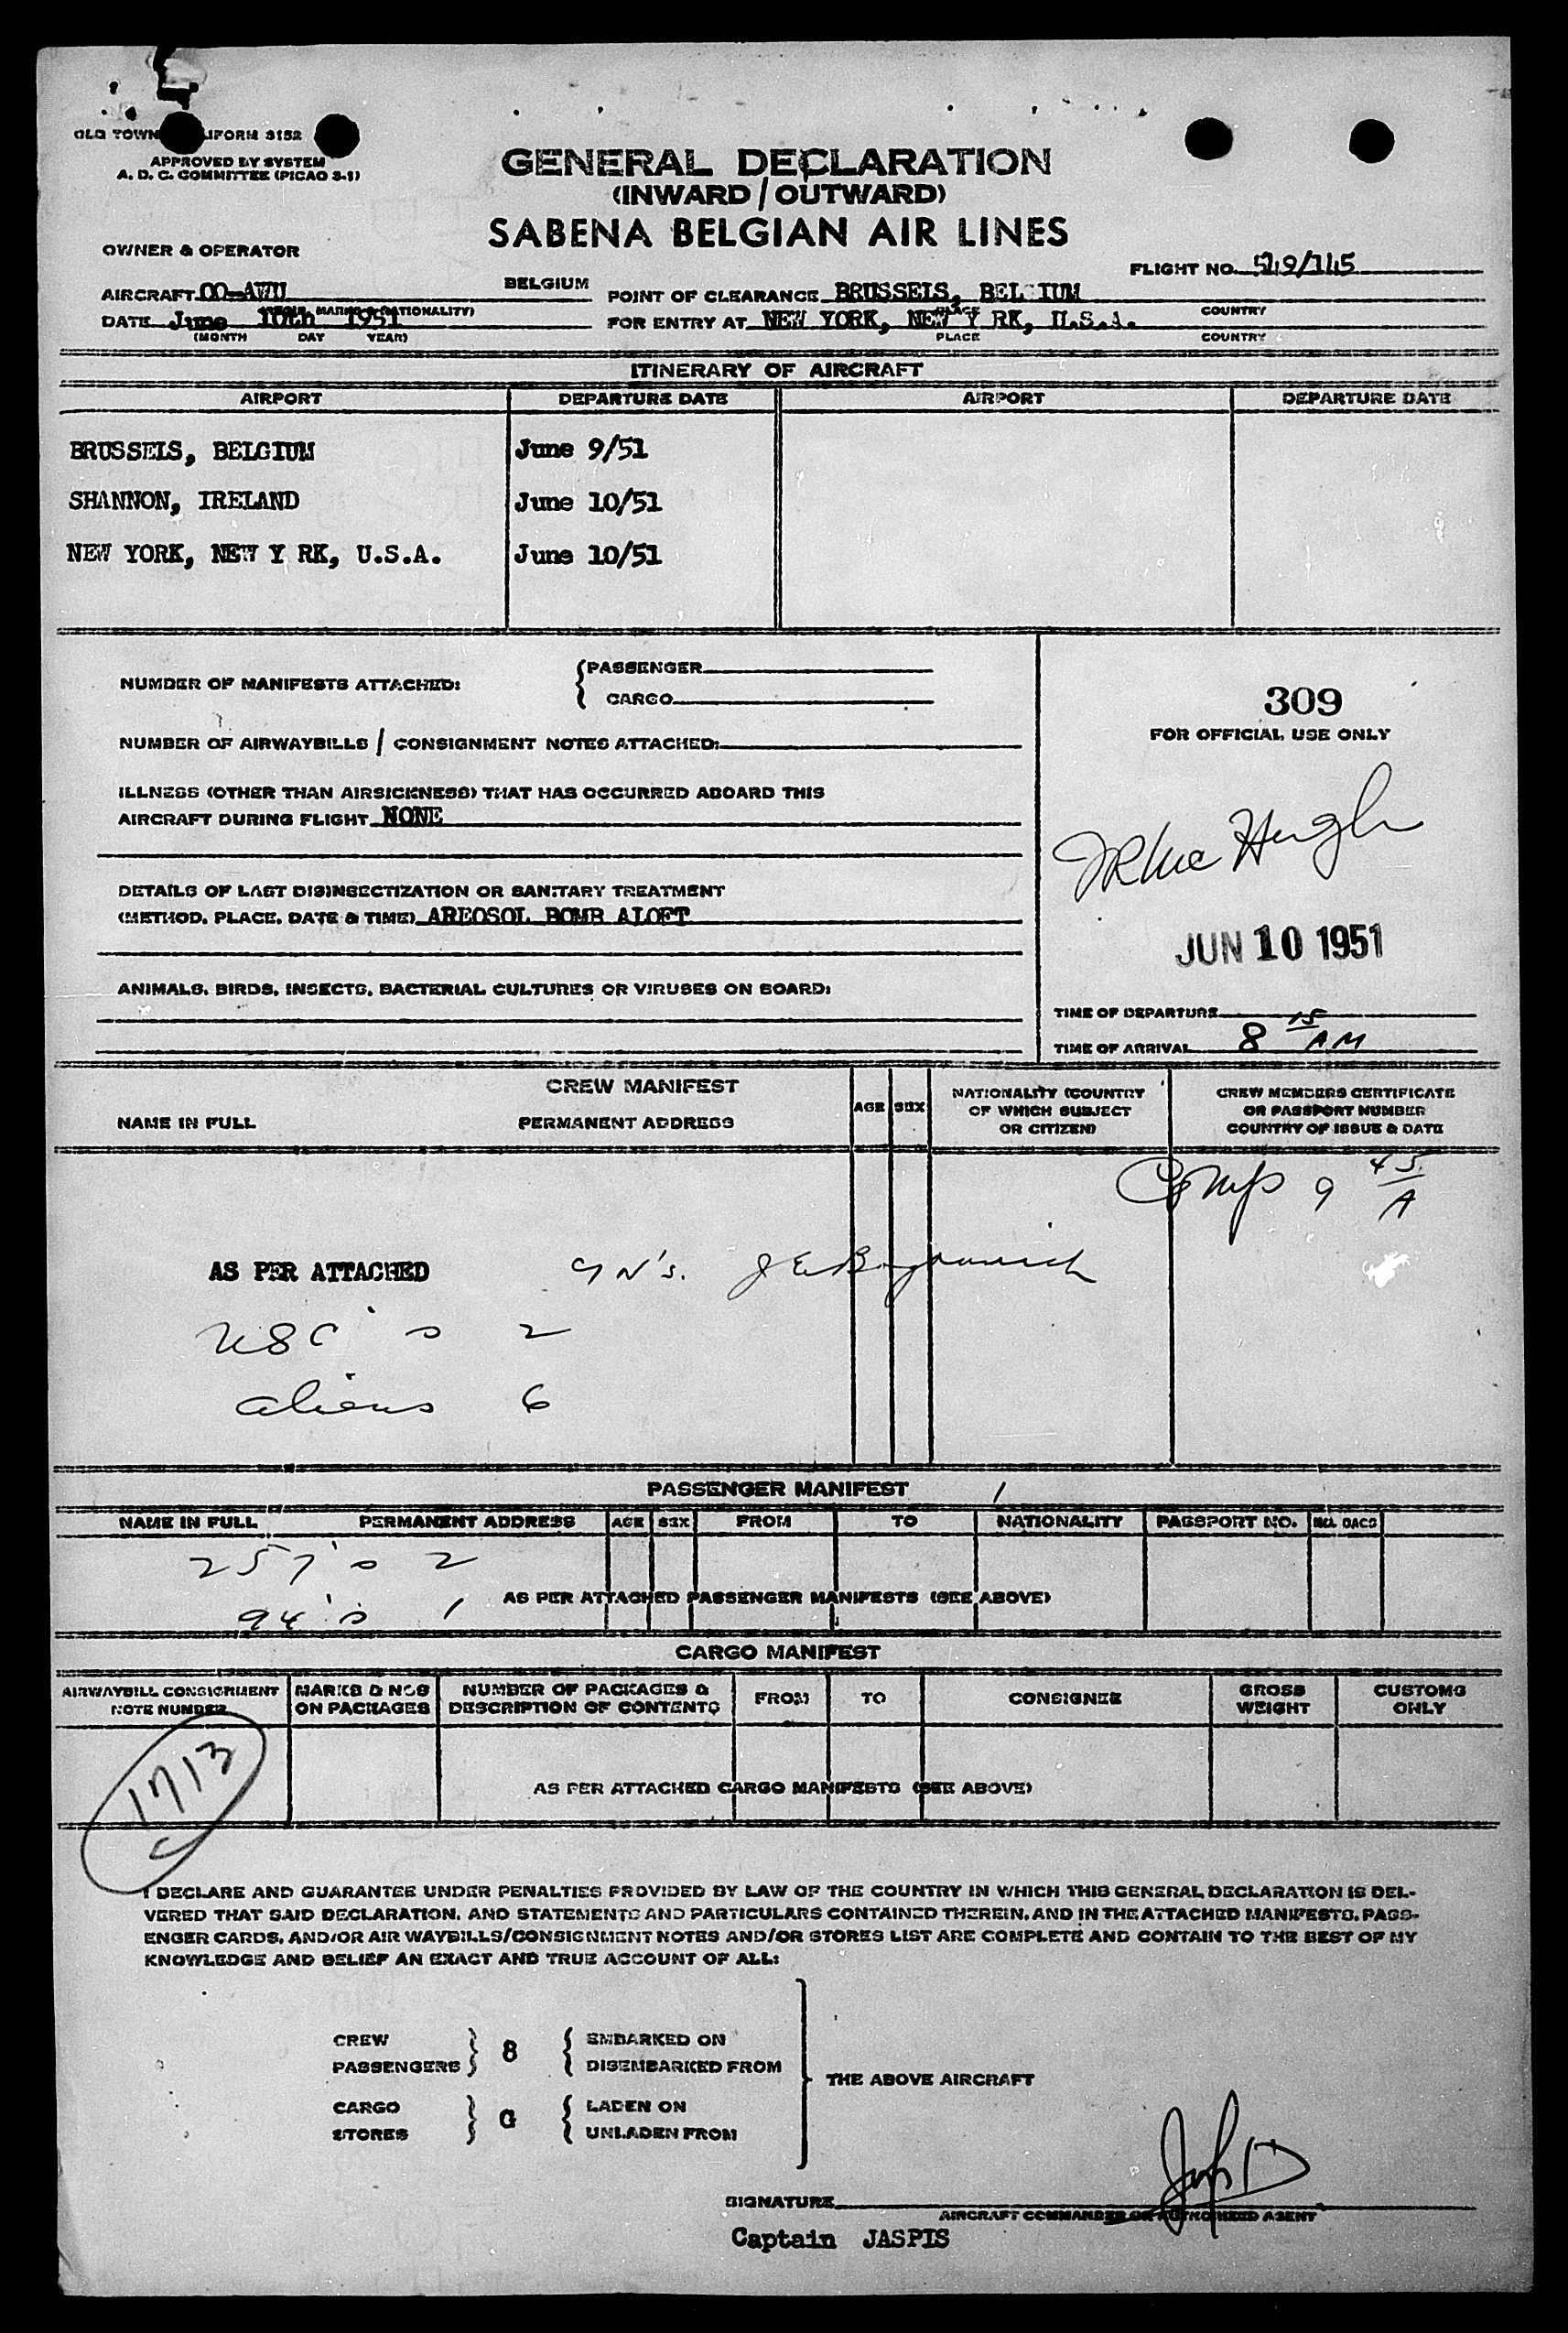 OLD TOWN IFORM 3152
APPROVED BY SYSTEM
A. D. C. COMMITTEE (PICAO 3-1)
GENERAL DECLARATION
(INWARD / OUTWARD)
SABENA BELGIAN AIR LINES
OWNER & OPERATOR
FLIGHT NO.
AIRCRAFT OO-AWU BELGIUM POINT OF CLEARANCE BRUSSELS, BEL IUM
MARKS & NATIONALITY) PLACE COUNTRY
DATE June 10th 1951 FOR ENTRY AT NEW YORK, NEW Y RK, U.S.A.
(MONTH DAY YEAR) PLACE COUNTRY
ITINERARY OF AIRCRAFT
AIRPORT DEPARTURE DATE AIRPORT DEPARTURE DATE
BRUSSELS, BELGIUM June 9/51
SHANNON, IRELAND June 10/51
NEW YORK, NEW Y RK, U.S.A. June 10/51
NUMBER OF MANIFESTS ATTACHED: PASSENGER
CARGO
309
FOR OFFICIAL USE ONLY
NUMBER OF AIRWAYBILLS / CONSIGNMENT NOTES ATTACHED:
ILLNESS (OTHER THAN AIRSICKNESS) THAT HAS OCCURRED ABOARD THIS
AIRCRAFT DURING FLIGHT NONE
DETAILS OF LAST DISINSECTIZATION OR SANITARY TREATMENT
(METHOD, PLACE, DATE & TIME) AREOSOL BOMB ALOFT
JUN 10 1951
ANIMALS, BIRDS, INSECTS, BACTERIAL CULTURES OR VIRUSES ON BOARD:
TIME OF DEPARTURE
TIME OF ARRIVAL 8 15 AM
CREW MANIFEST
NAME IN FULL PERMANENT ADDRESS AGE SEX NATIONALITY (COUNTRY OF WHICH SUBJECT OR CITIZEN) CREW MEMBERS CERTIFICATE OR PASSPORT NUMBER COUNTRY OF ISSUE & DATE
Comp 9 45 A
AS PER ATTACHED
USC's 2
aliens 6
PASSENGER MANIFEST 1
NAME IN FULL PERMANENT ADDRESS AGE SEX FROM TO NATIONALITY PASSPORT NO.
257's 2
AS PER ATTACHED PASSENGER MANIFESTS (SEE ABOVE)
94's 1
CARGO MANIFEST
AIRWAYBILL CONSIGNMENT NOTE NUMBER MARKS & NOS ON PACKAGES NUMBER OF PACKAGES & DESCRIPTION OF CONTENTS FROM TO CONSIGNEE GROSS WEIGHT CUSTOMS ONLY
1713
AS PER ATTACHED CARGO MANIFESTS (SEE ABOVE)
I DECLARE AND GUARANTEE UNDER PENALTIES PROVIDED BY LAW OF THE COUNTRY IN WHICH THIS GENERAL DECLARATION IS DEL-
VERED THAT SAID DECLARATION, AND STATEMENTS AND PARTICULARS CONTAINED THEREIN, AND IN THE ATTACHED MANIFESTS, PASS-
ENGER CARDS, AND/OR AIR WAYBILLS/CONSIGNMENT NOTES AND/OR STORES LIST ARE COMPLETE AND CONTAIN TO THE BEST OF MY
KNOWLEDGE AND BELIEF AN EXACT AND TRUE ACCOUNT OF ALL:
CREW 8 EMBARKED ON
PASSENGERS DISEMBARKED FROM
THE ABOVE AIRCRAFT
CARGO LADEN ON
STORES UNLADEN FROM
SIGNATURE
AIRCRAFT COMMANDER OR AUTHORIZED AGENT
Captain JASPIS